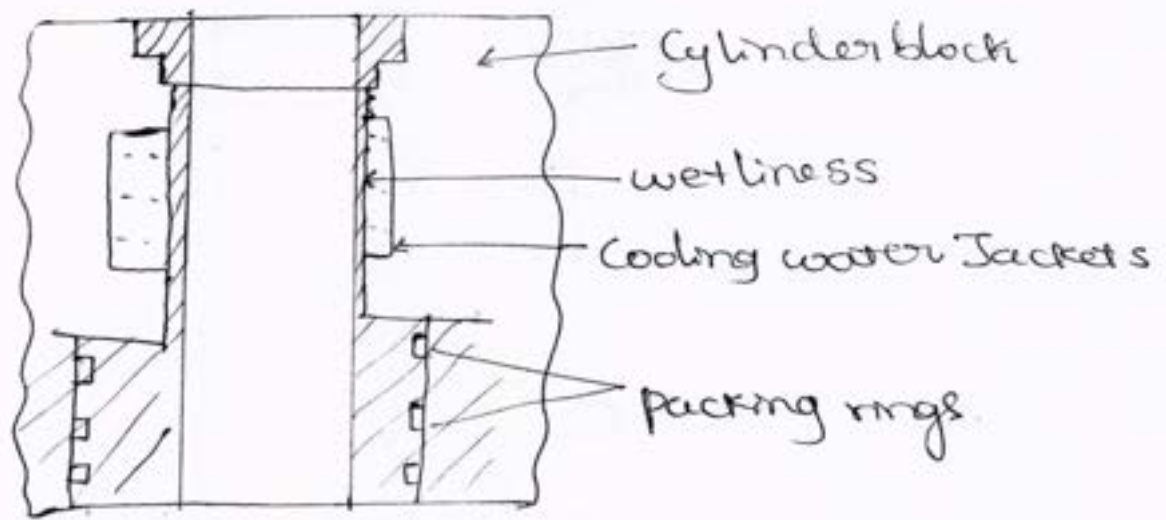 Cylinderblock
wetliness
Cooling water Jackets
packing rings.